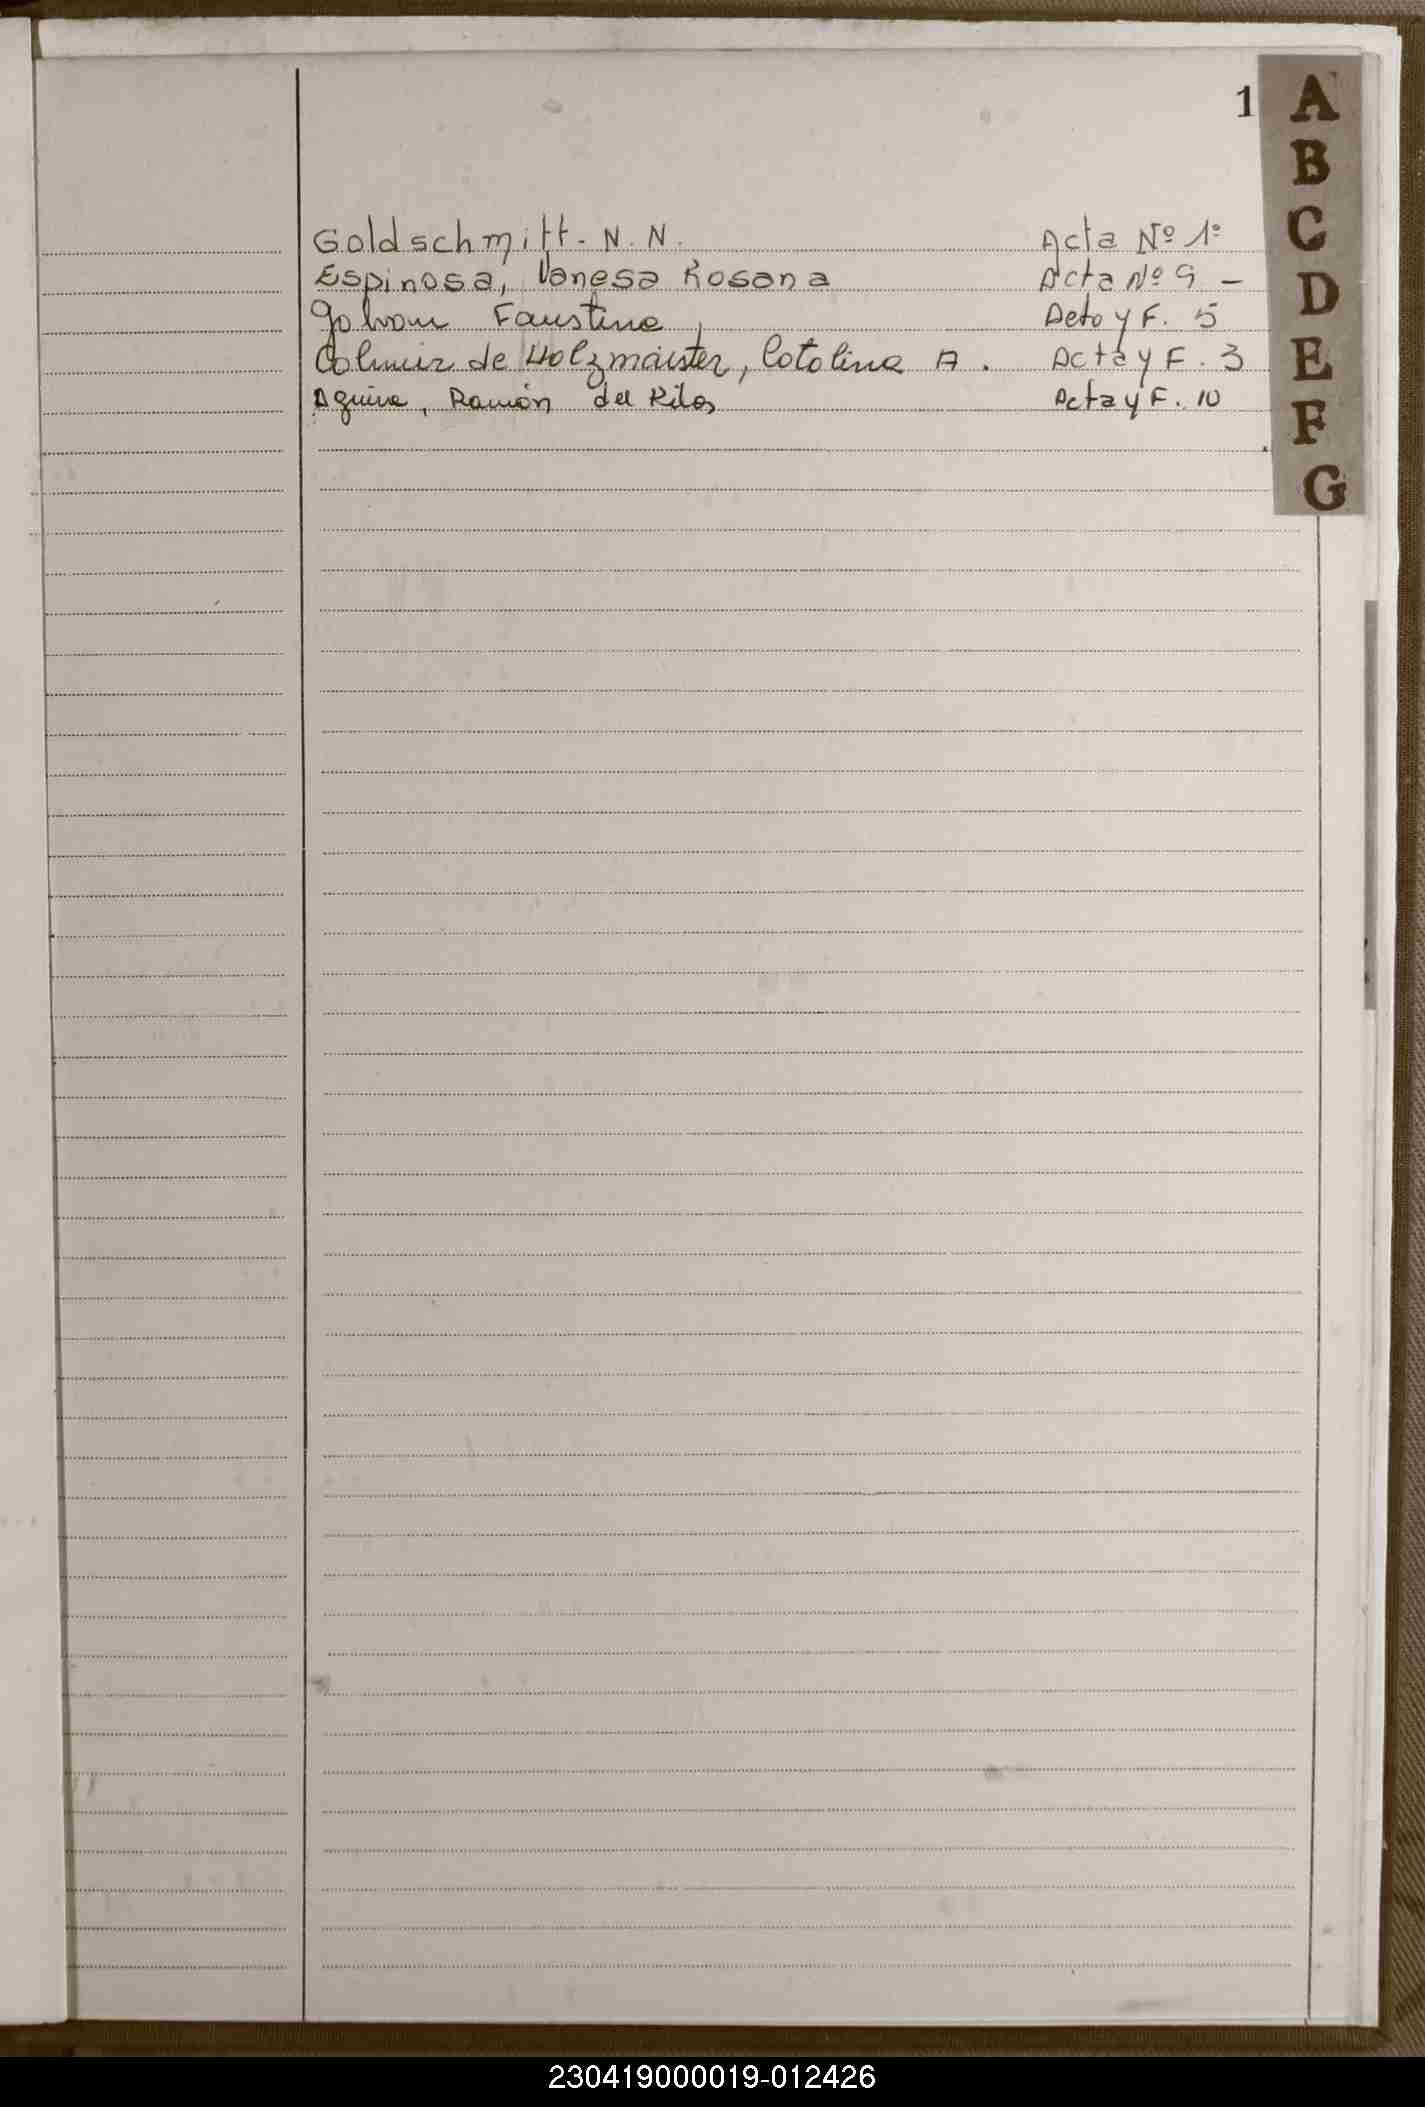 1
A
B
C
D
E
F
G
Goldschmitt - N. N. Acta Nº 1º
Espinosa, Vanesa Rosana Acta Nº 9 -
Faustino, Acta y F. 5
de Holzmaister, Catalina A. Acta y F. 3
Aguirre, Ramón del Acta y F. 10
230419000019-012426